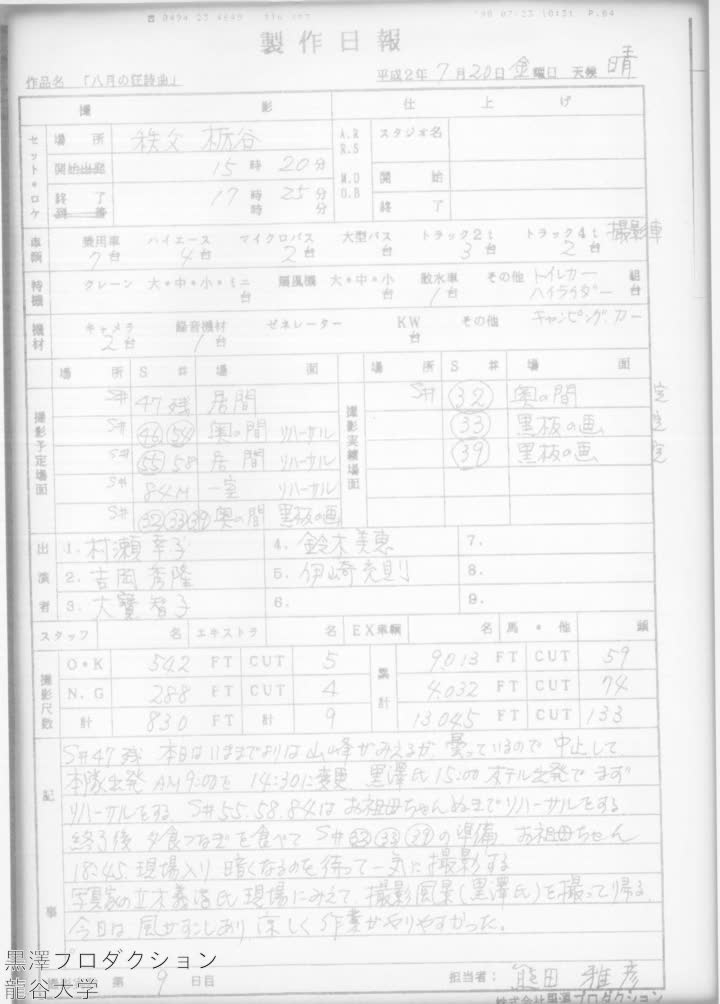 製作日報
作品名 「八月の狂詩曲」 平成2年7月20日金曜日 天候 晴
撮影 仕上げ
セット・ロケ 場所 秩父 栃谷 A.R R.S スタジオ名
開始出発 15時20分 M.O D.B 開始
終了到着 17時25分 終了
時 分
車輌 乗用車 7台 ハイエース 4台 マイクロバス 2台 大型バス 台 トラック2t 3台 トラック4t 2台 撮影車
特機 クレーン 大・中・小・ミニ 台 扇風機 大・中・小 台 散水車 1台 その他 トイレカー ハイライダー 組台
機材 キャメラ 2台 録音機材 1台 ゼネレーター KW 台 その他 キャンピングカー
場所 S# 場面 場所 S# 場面
撮影予定場面 撮影実績場面
S# 47残 居間 S# 32 奥の間 完
S# 46 54 奥の間 リハーサル 33 黒板の画 完
S# 55 58 居間 リハーサル 39 黒板の画 完
S# 84M 一室 リハーサル
S# 32 33 39 奥の間 黒板の画
出演者 1. 村瀬幸子 4. 鈴木美恵 7.
2. 吉岡秀隆 5. 伊崎充則 8.
3. 大寶智子 6. 9.
スタッフ 名 エキストラ 名 EX車輌 名 馬・他 頭
撮影尺数 O・K 542 FT CUT 5 累計 9013 FT CUT 59
N.G 288 FT CUT 4 4,032 FT CUT 74
計 830 FT 計 9 13045 FT CUT 133
記事
S#47残 本日はいままでよりは山峰がみえるが曇っているので中止して
本隊出発AM9:00を14:30に変更 黒澤氏15:00ホテル出発でまず
リハーサルをする S#55.58.84はお祖母ちゃんぬきでリハーサルをする
終了後 夕食つなぎを食べて S#32 33 39の準備 お祖母ちゃん
18:45.現場入り 暗くなるのを待って一気に撮影する
写真家の立木義浩氏現場にみえて、撮影風景(黒澤氏)を撮って帰る.
今日は風がすこしあり涼しく作業がやりやすかった。
第9日目 担当者: 熊田雅彦
株式会社黒澤プロダクション
黒澤プロダクション
龍谷大学